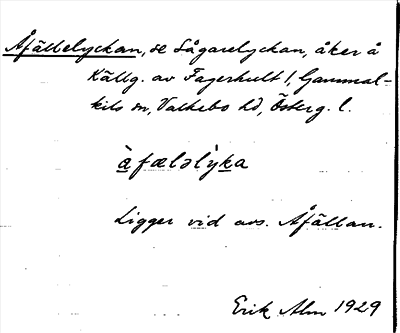 Åfällelyckan, se Sågarelyckan, åker å
Källg. av Fagerhult 1, Gammal-
kils sn, Valkebo hd, Österg. l.
àfæləlỳka
Ligger vid avs. Åfällan.
Erik Alm 1929